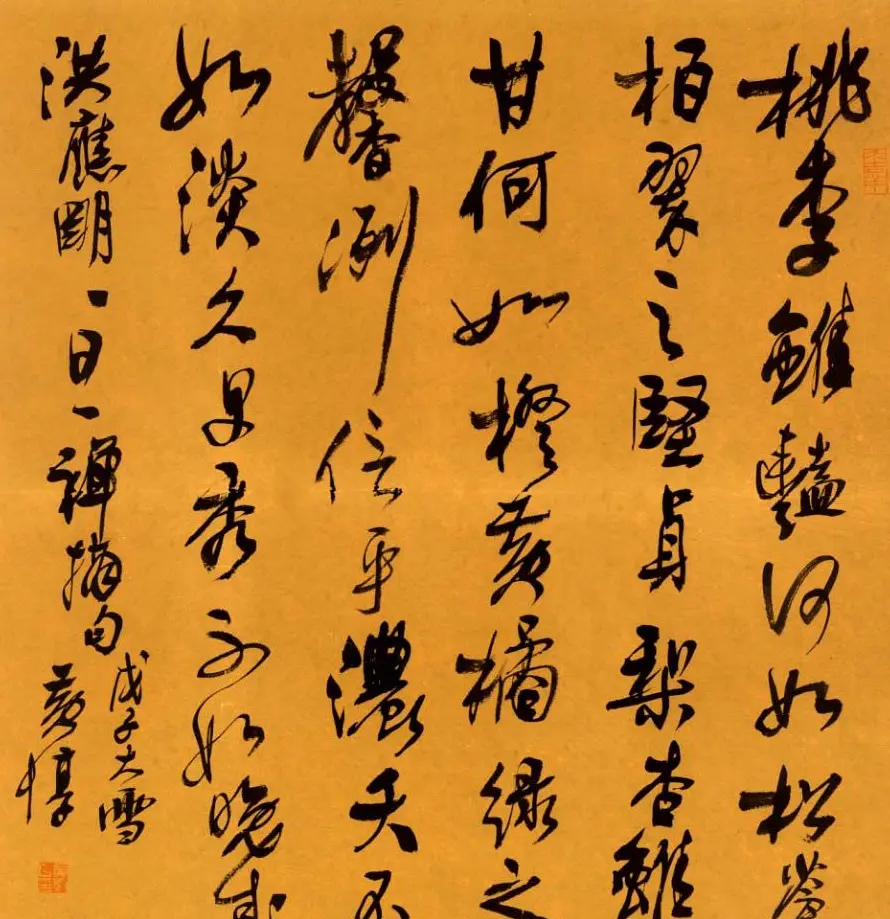 桃李雖豔何如松蒼
柏翠之堅貞梨杏雖
甘何如橙黃橘綠之
馨冽信乎濃夭不
如淡久早秀不如晚成
洪應明一日一禪摘句
戊子大雪
黃惇